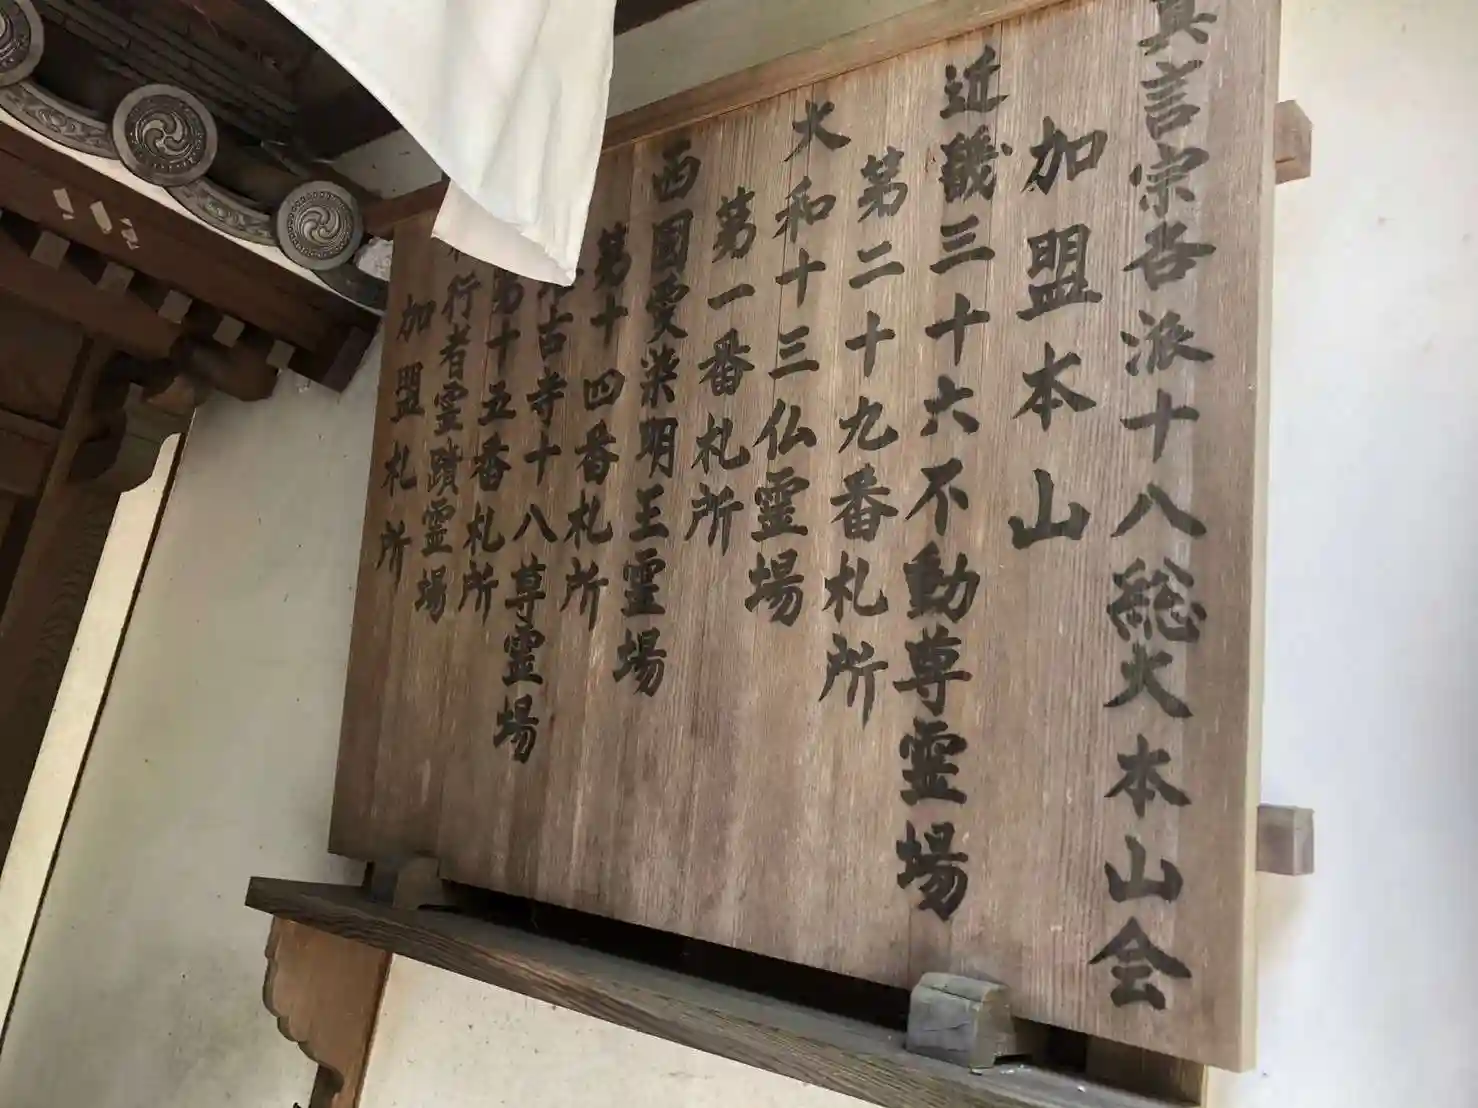 真言宗各派十八総大本山会
加盟本山
近畿三十六不動尊霊場
第二十九番札所
大和十三仏霊場
第一番札所
西國愛染明王霊場
第十四番札所
古寺十八尊霊場
第十五番札所
行者霊蹟霊場
加盟札所